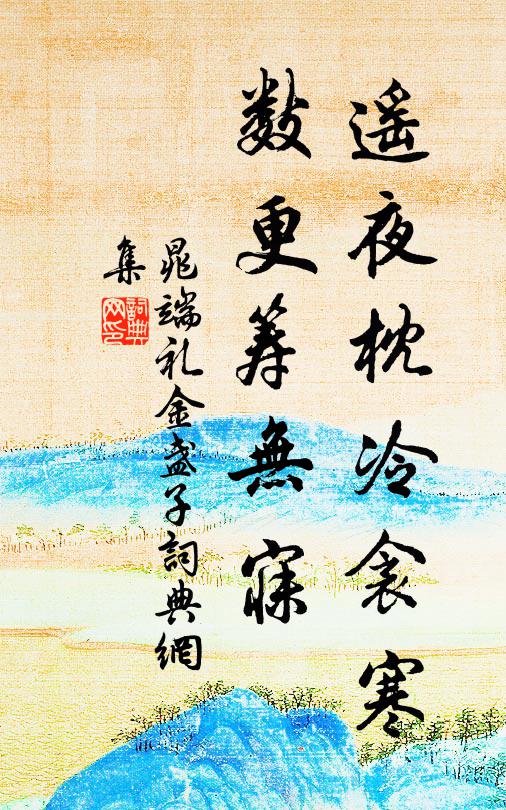 遥夜枕冷衾寒
數更筹無寐
晁端礼金盏子詞典網
集
詞典網印